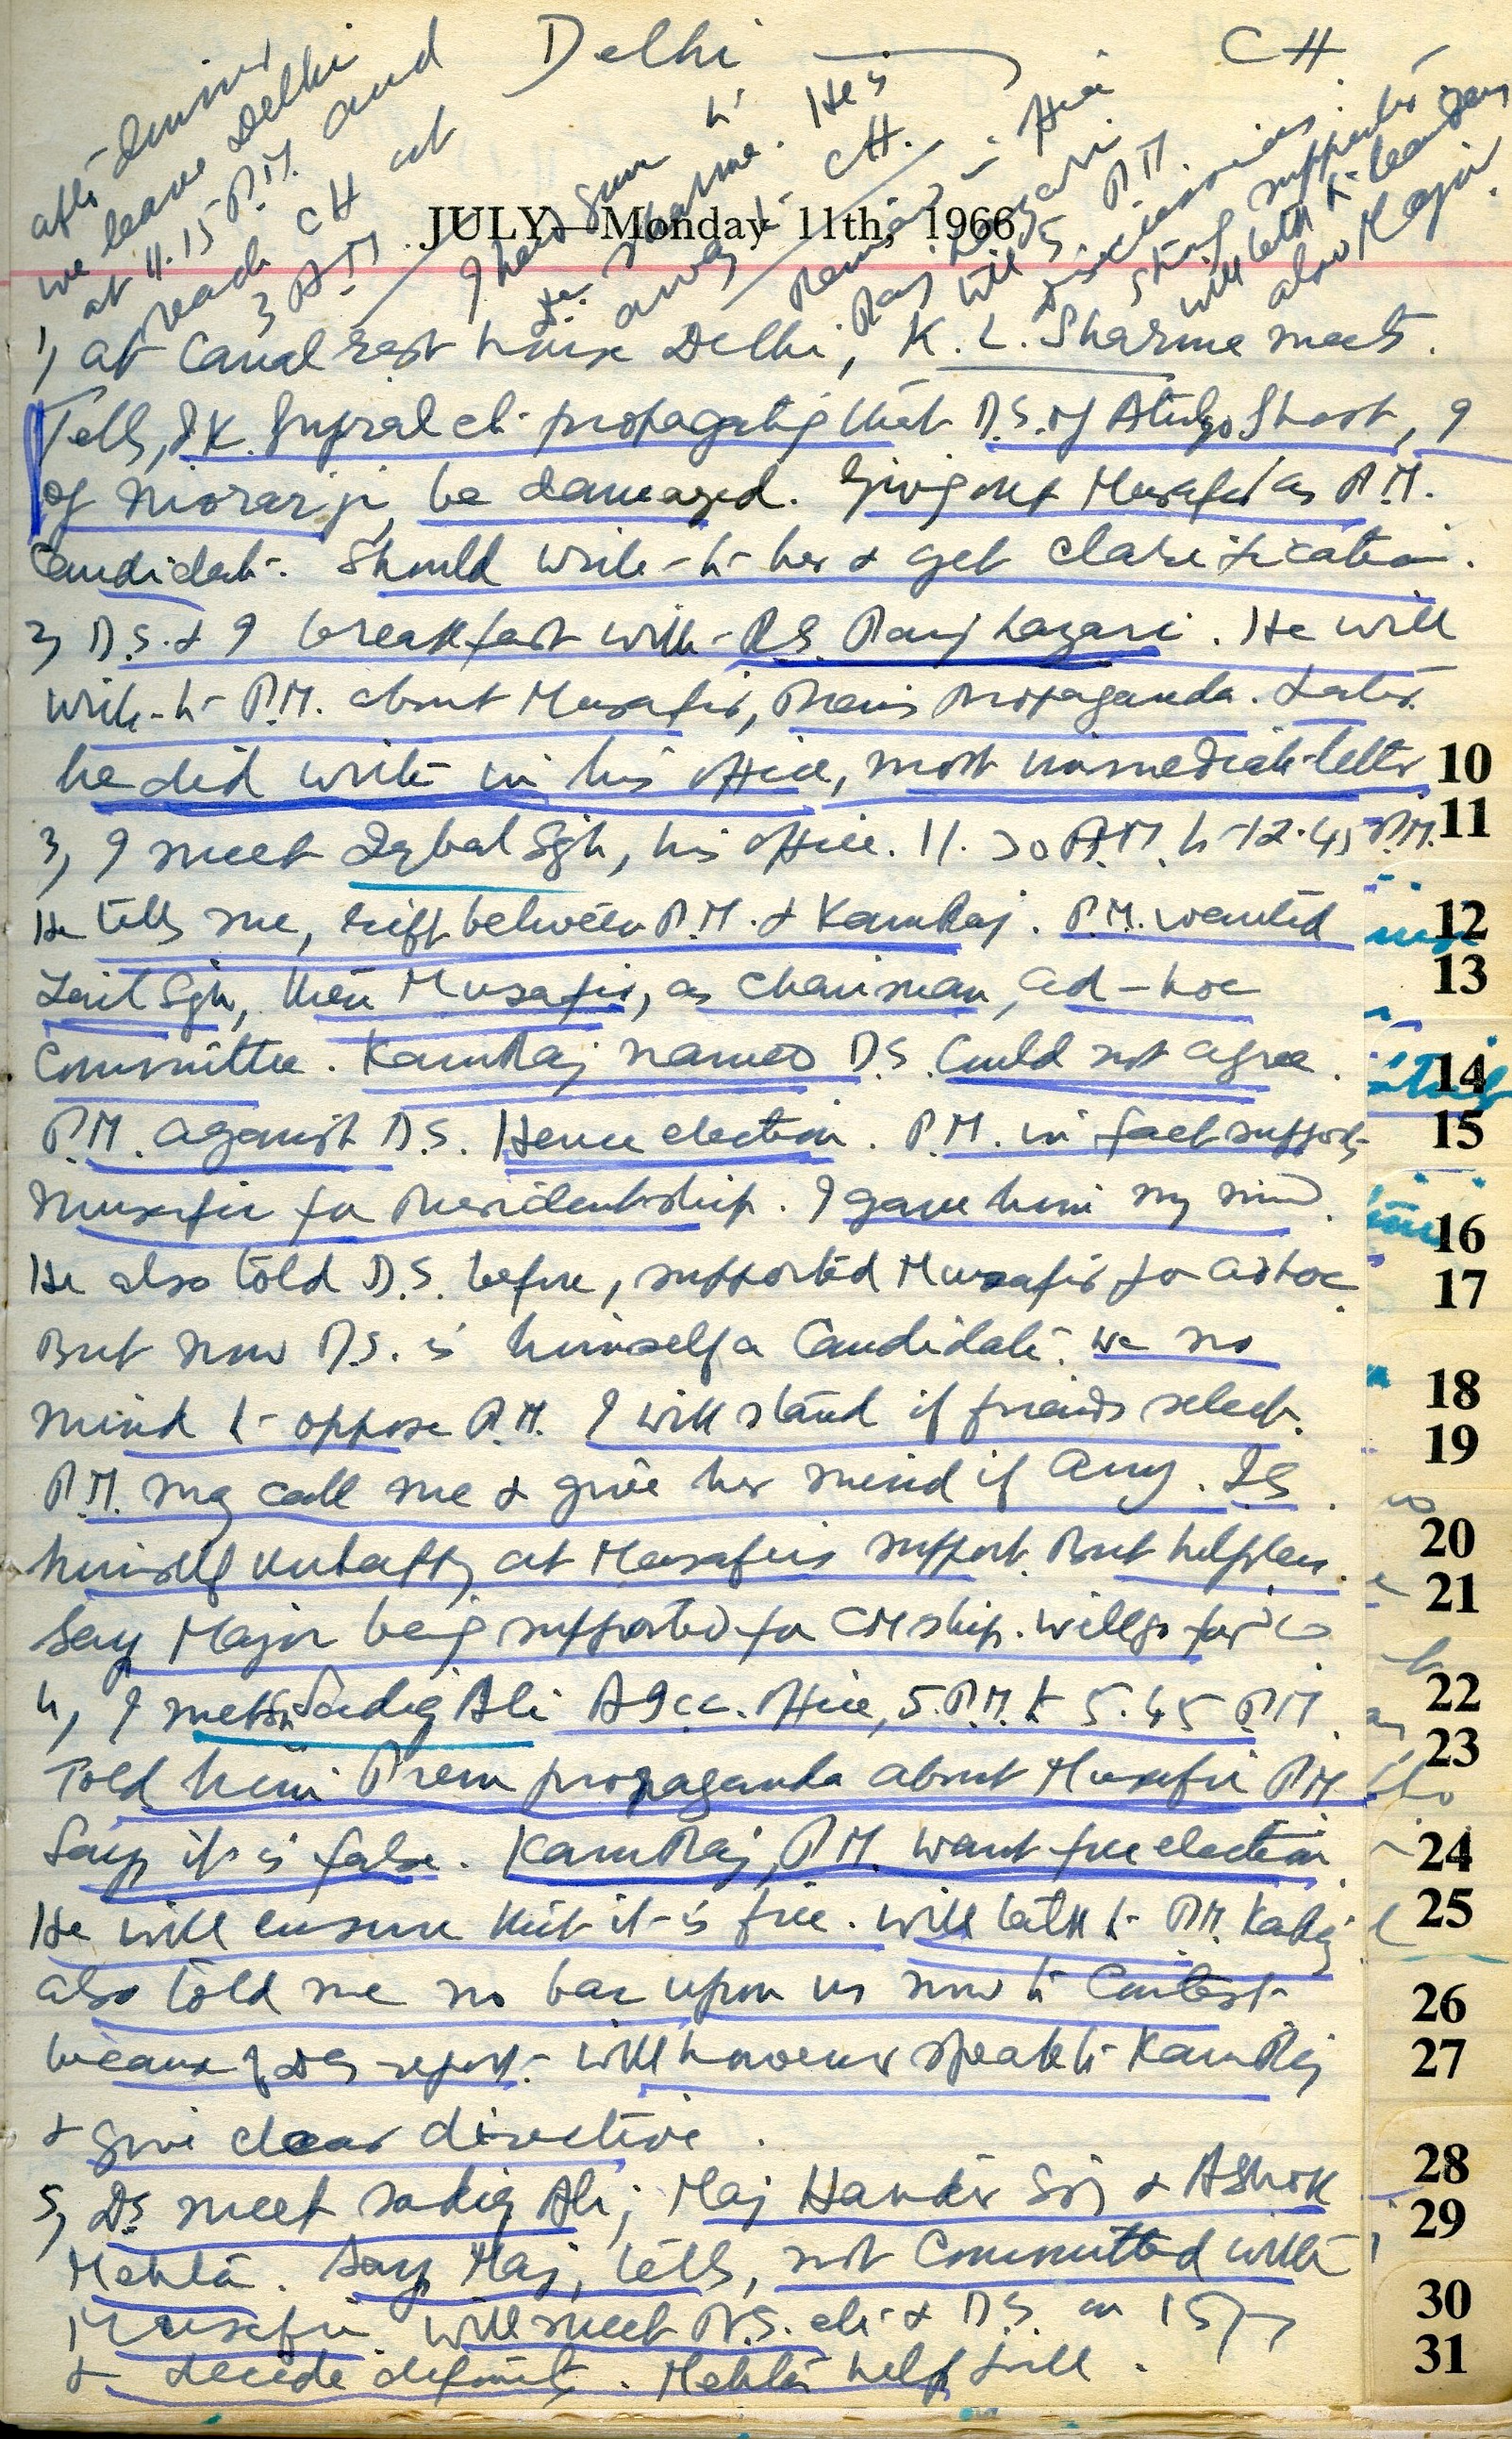 Delhi — CH
after dinner
we leave Delhi
at 11.15 P.M. and
reach CH at
3 A.M.
I hear Gian
Sharma. He is
away CH.
Remain in
Raj Hazari
till 5 P.M.
Discussions.
supporter
will talk to leaders
also Major.
JULY—Monday 11th, 1966
1, at Canal rest house Delhi, K. L. Sharma meets.
Tells, I.K. Gujral etc propagating that D.S. of Atulya Ghosh, I
of Morarji, be damaged. Giving out Musafir as P.M.
Candidate. Should write to her & get clarification.
2, D.S. & I breakfast with R.S. Panjhazari. He will
write to P.M. about Musafir, Prem's propaganda. Later
he did write in his office, most immediate letter
3, I meet Iqbal Sgh, his office. 11.30 A.M. to 12.45 P.M.
He tells me, rift between P.M. & KamRaj. P.M. wanted
Zail Sgh, then Musafir, as chairman, ad-hoc
Committee. KamRaj named D.S. Could not agree.
P.M. against D.S. Hence election. P.M. in fact supports
Musafir for Presidentship. I gave him my mind.
He also told D.S. before, supported Musafir for adhoc.
But now D.S. is himself a Candidate. We no
mind to oppose P.M. I will stand if friends select.
P.M. may call me & give her mind if any. IS
himself unhappy at Musafirs support. But helpless.
Say Major being supported for CMship. will go for
4, I meet Sh Sadiq Ali AICC. office, 5. P.M. to 5.45 P.M.
Told him Prem propaganda about Musafir PM
Says it is false. KamRaj, P.M. want free election.
He will ensure that it is free. Will talk to P.M. KaRaj
also told me no bar upon us now to Contest
because of DS report. Will however speak to KamRaj
& give clear directive.
5, DS meet Sadiq Ali; Maj Harinder Sgh & Ashok
Mehta. Says Maj, tells, not Committed with
Musafir. Will meet N.S. etc & D.S. on 15/7
& decide definitely. Mehta helpful.
10
11
12
13
14
15
16
17
18
19
20
21
22
23
24
25
26
27
28
29
30
31